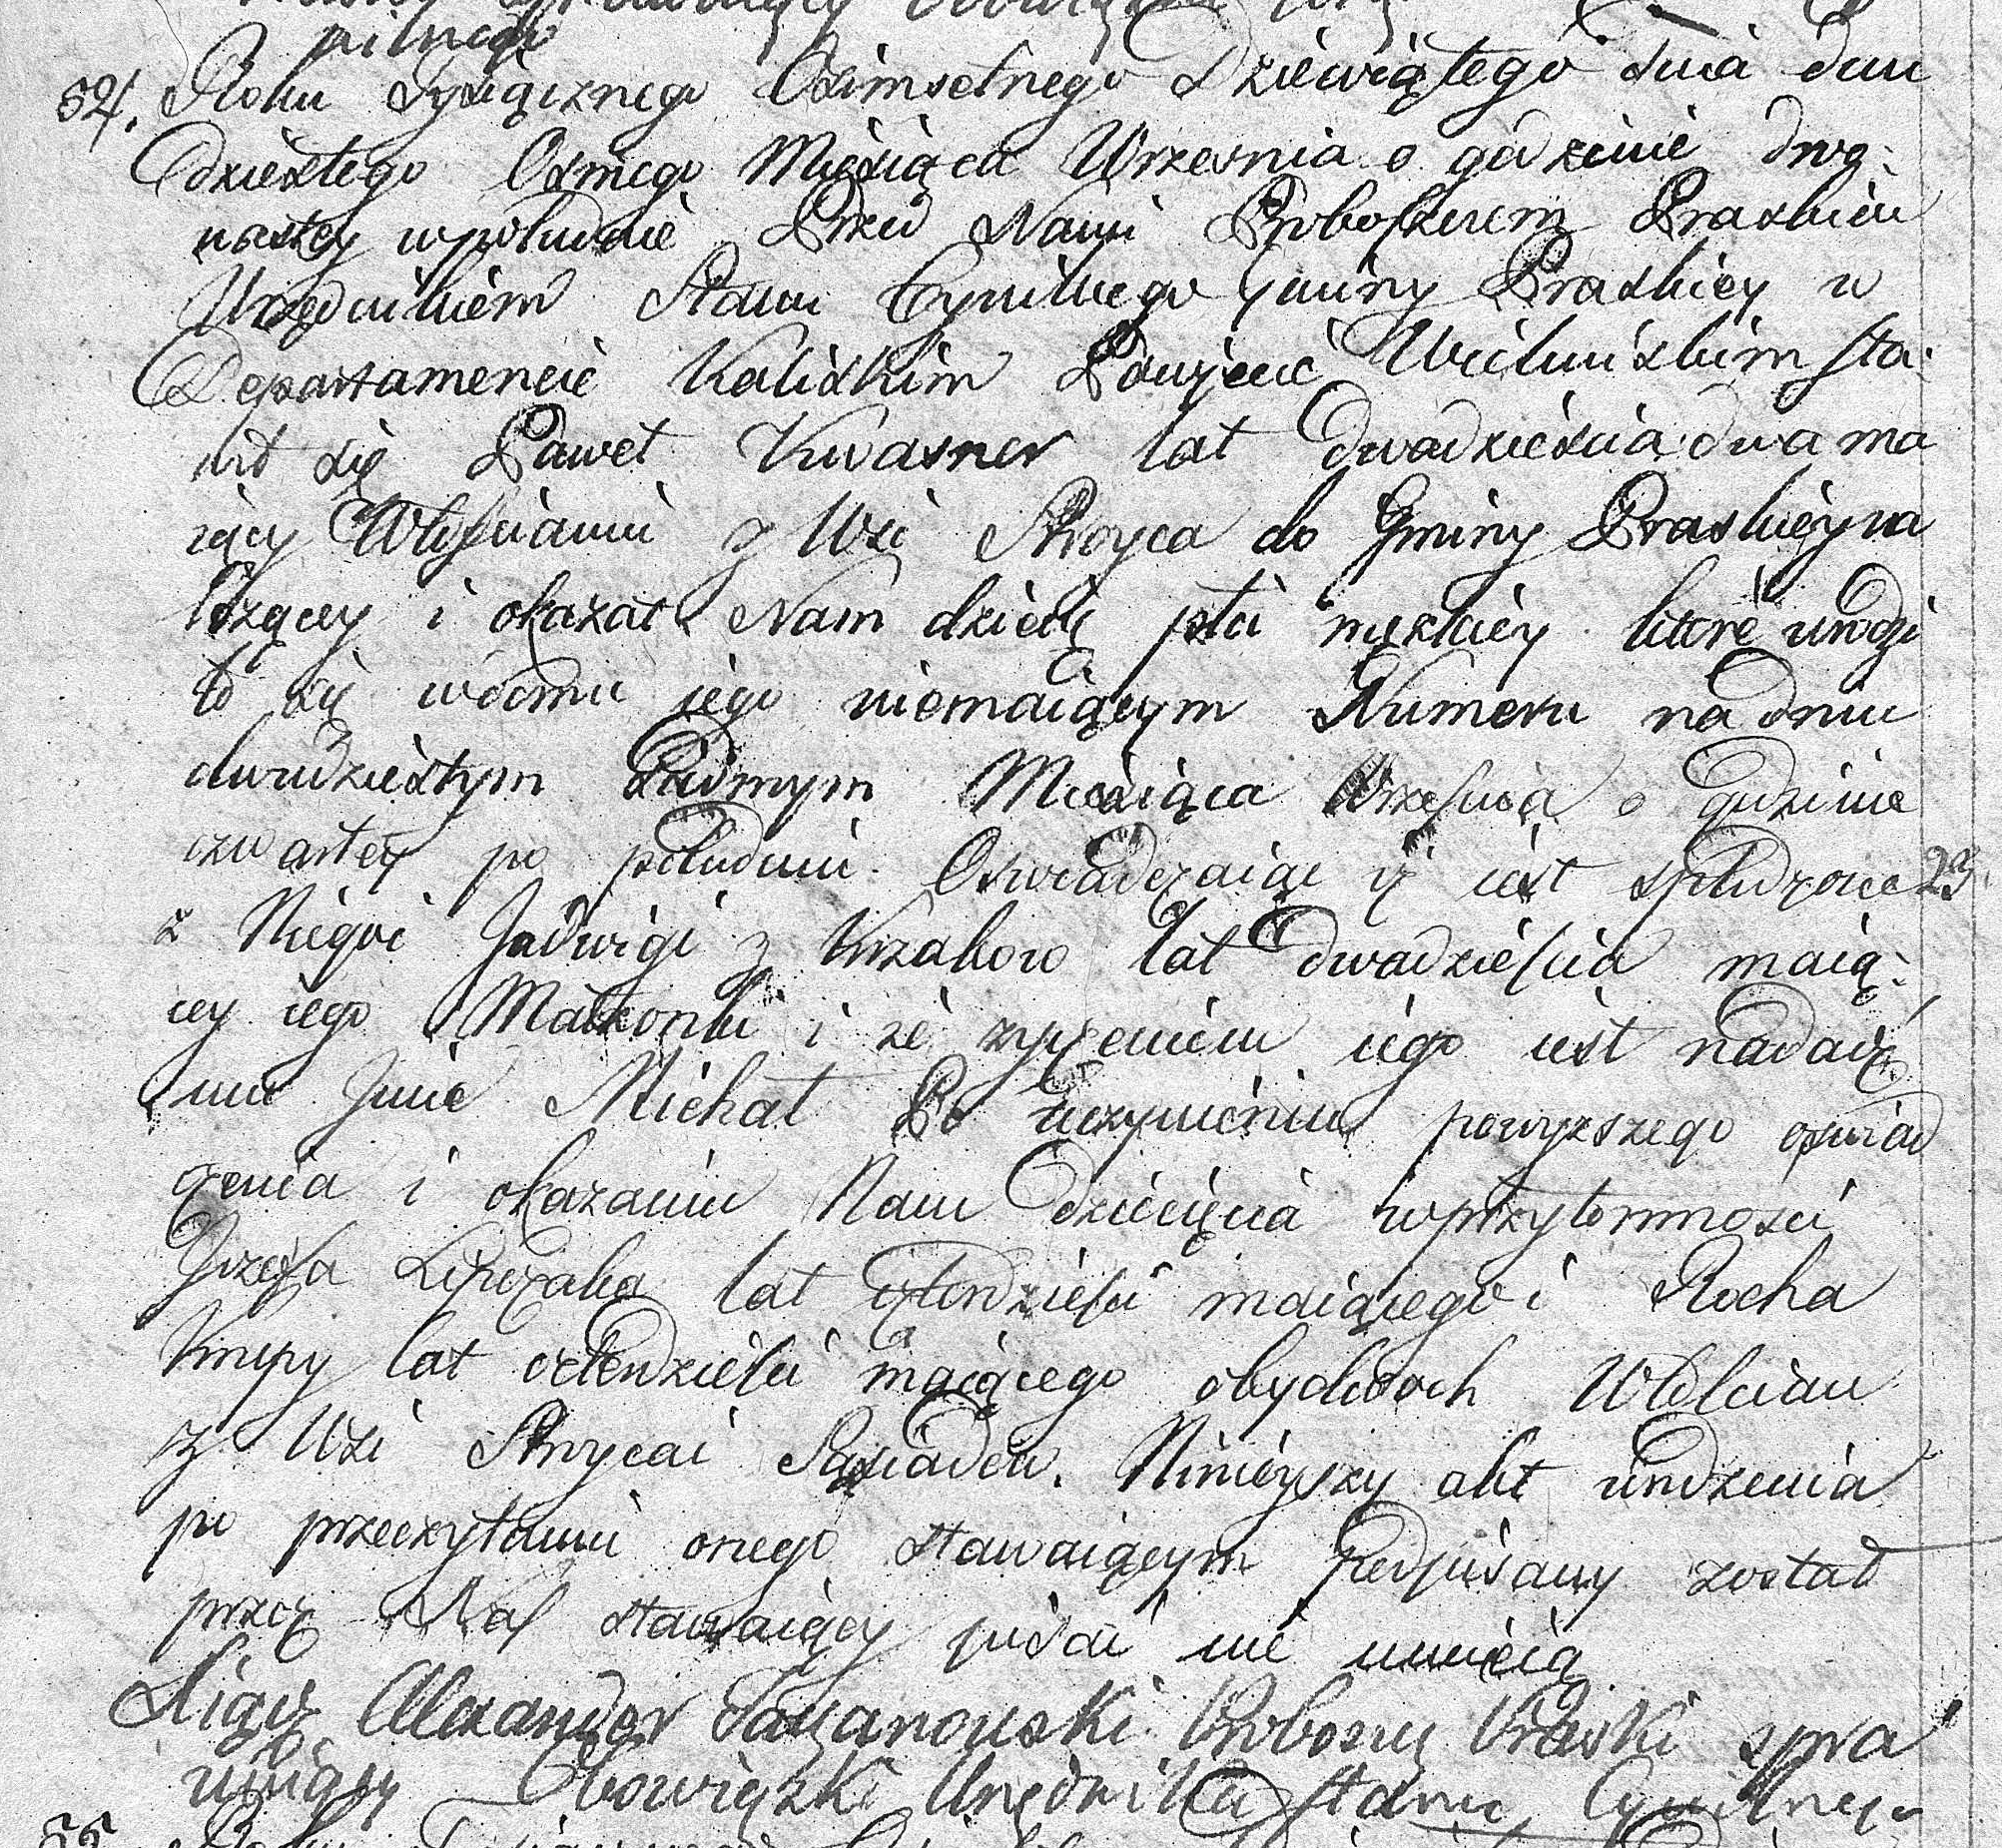 pilnego
54. Roku Tysiącznego Osimsetnego Dziewiątego dnia dwu
dziestego Osmego Miesiąca Wrzesnia o godzinie dwa:
nastey w południe Przed Nami Proboszczem Praskim
Urzędnikiem Stanu Cywilnego Gminy Praskiey w
Departamencie Kaliskim Powiecie Wieluńskim sta:
wił się Paweł Kwasner lat dwadziescia dwa ma
iący Włościanin z Wsi Stroyca do Gminy Praskiey na
leżącey i okazał Nam dziecię płci męzkiey które urodzi
ło się w domu iego niemaiącym Numeru na dniu
dwudziestym Siudmym Miesiąca Września o godzinie
czwartey po południu. Oswiadczaiąc iż iest spłodzone
z Niego i Jadwigi z Krzaków lat dwadzieścia maią:
cey iego Małżonki i że życzeniem iego iest nadać
mu Imie Michał Po uczynieniu powyższego oswiad
czenia i okazaniu Nam dziecięcia w przytomności
Jozefa lat czterdzieści maiącego i Rocha
lat czterdzieści maiącego obydwoch Włościan
z Wsi Stroyca i Sąsiadów. Ninieyszy akt urodzenia
po przeczytaniu onego stawaiącym podpisany został
przez Nas stawaiący pisać nie umieią
Alexander Proboszcz Praski spra
wuiący Obowiązki Urzędnika Stanu Cywilnego
55